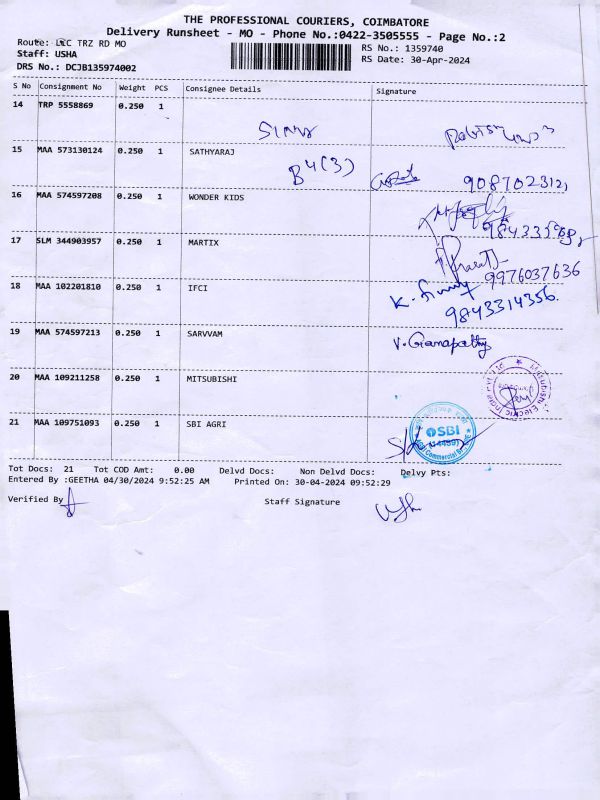 THE PROFESSIONAL COURIERS, COIMBATORE
Delivery Runsheet - MO - Phone No.:0422-3505555 - Page No.:2
Route: LIC TRZ RD MO
RS No.: 1359740
Staff: USHA
RS Date: 30-Apr-2024
DRS No.: DCJB135974002
S No Consignment No Weight PCS Consignee Details Signature
14 TRP 5558869 0.250 1
15 MAA 573130124 0.250 1 SATHYARAJ
B4(3)
16 MAA 574597208 0.250 1 WONDER KIDS
17 SLM 344903957 0.250 1 MARTIX
9976037636
18 MAA 102201810 0.250 1 IFCI
9843314356.
19 MAA 574597213 0.250 1 SARVVAM V. Ganapathy
20 MAA 109211258 0.250 1 MITSUBISHI
21 MAA 109751093 0.250 1 SBI AGRI
SBI
Tot Docs: 21 Tot COD Amt: 0.00 Delvd Docs: Non Delvd Docs: Delvy Pts:
Entered By :GEETHA 04/30/2024 9:52:25 AM Printed On: 30-04-2024 09:52:29
Verified By Staff Signature